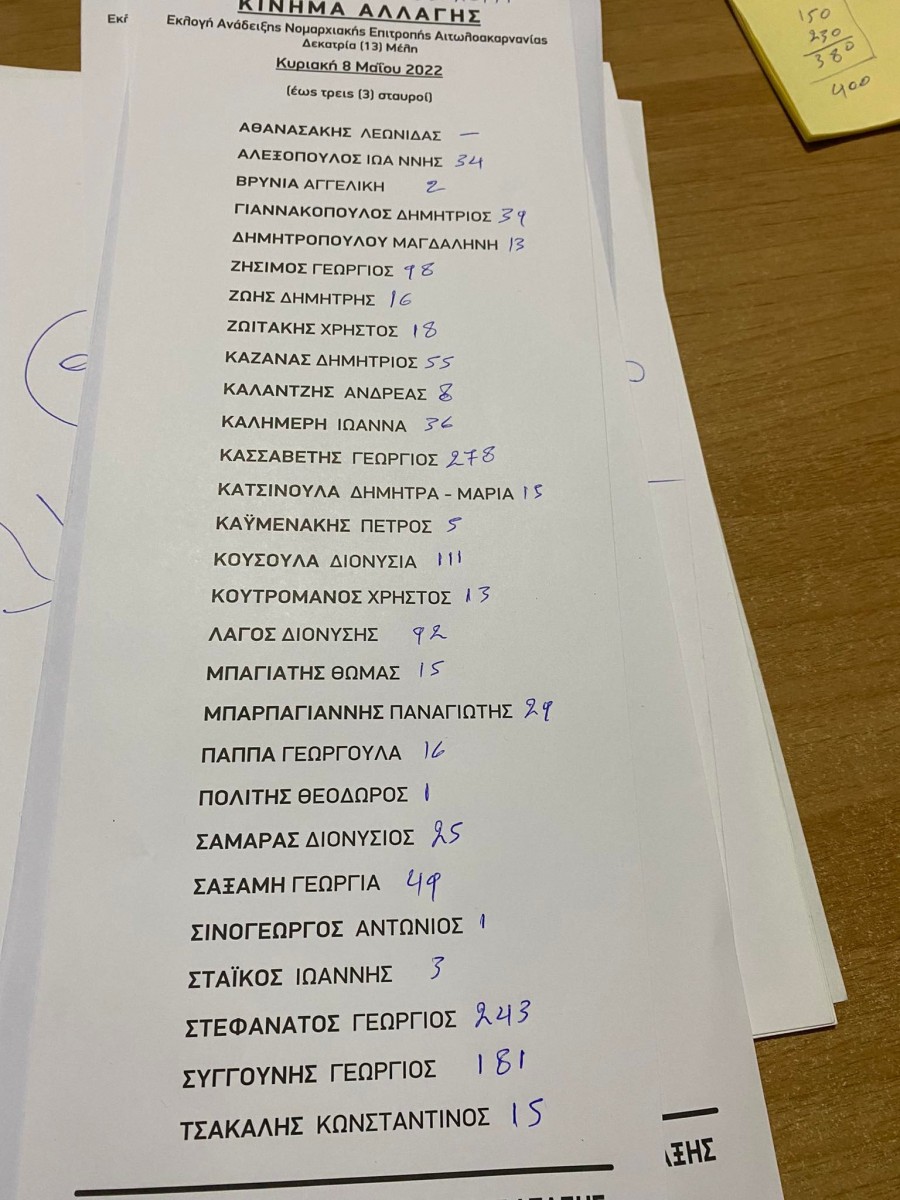 150
230
380
400
Εκλ
ΚΙΝΗΜΑ ΑΛΛΑΓΗΣ
Εκλογή Ανάδειξης Νομαρχιακής Επιτροπής Αιτωλοακαρνανίας
Δεκατρία (13) Μέλη
Κυριακή 8 Μαΐου 2022
(έως τρεις (3) σταυροί)
ΑΘΑΝΑΣΑΚΗΣ ΛΕΩΝΙΔΑΣ —
ΑΛΕΞΟΠΟΥΛΟΣ ΙΩΑ ΝΝΗΣ 34
ΒΡΥΝΙΑ ΑΓΓΕΛΙΚΗ 2
ΓΙΑΝΝΑΚΟΠΟΥΛΟΣ ΔΗΜΗΤΡΙΟΣ 39
ΔΗΜΗΤΡΟΠΟΥΛΟΥ ΜΑΓΔΑΛΗΝΗ 13
ΖΗΣΙΜΟΣ ΓΕΩΡΓΙΟΣ 98
ΖΩΗΣ ΔΗΜΗΤΡΗΣ 16
ΖΩΙΤΑΚΗΣ ΧΡΗΣΤΟΣ 18
ΚΑΖΑΝΑΣ ΔΗΜΗΤΡΙΟΣ 55
ΚΑΛΑΝΤΖΗΣ ΑΝΔΡΕΑΣ 8
ΚΑΛΗΜΕΡΗ ΙΩΑΝΝΑ 36
ΚΑΣΣΑΒΕΤΗΣ ΓΕΩΡΓΙΟΣ 278
ΚΑΤΣΙΝΟΥΛΑ ΔΗΜΗΤΡΑ - ΜΑΡΙΑ 15
ΚΑΫΜΕΝΑΚΗΣ ΠΕΤΡΟΣ 5
ΚΟΥΣΟΥΛΑ ΔΙΟΝΥΣΙΑ 111
ΚΟΥΤΡΟΜΑΝΟΣ ΧΡΗΣΤΟΣ 13
ΛΑΓΟΣ ΔΙΟΝΥΣΗΣ 92
ΜΠΑΓΙΑΤΗΣ ΘΩΜΑΣ 15
ΜΠΑΡΠΑΓΙΑΝΝΗΣ ΠΑΝΑΓΙΩΤΗΣ 29
ΠΑΠΠΑ ΓΕΩΡΓΟΥΛΑ 16
ΠΟΛΙΤΗΣ ΘΕΟΔΩΡΟΣ 1
ΣΑΜΑΡΑΣ ΔΙΟΝΥΣΙΟΣ 25
ΣΑΞΑΜΗ ΓΕΩΡΓΙΑ 49
ΣΙΝΟΓΕΩΡΓΟΣ ΑΝΤΩΝΙΟΣ 1
ΣΤΑΪΚΟΣ ΙΩΑΝΝΗΣ 3
ΣΤΕΦΑΝΑΤΟΣ ΓΕΩΡΓΙΟΣ 243
ΣΥΓΓΟΥΝΗΣ ΓΕΩΡΓΙΟΣ 181
ΤΣΑΚΑΛΗΣ ΚΩΝΣΤΑΝΤΙΝΟΣ 15
ΞΗΣ